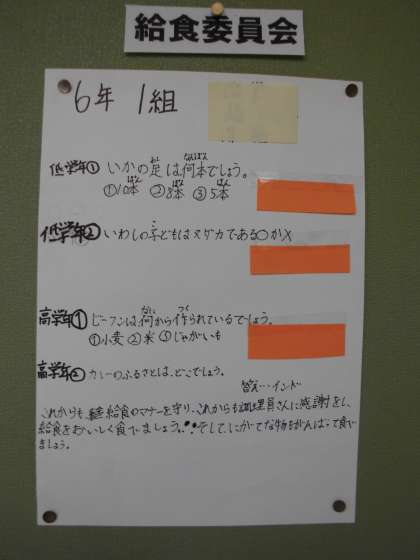 給食委員会
6年 1組
低学年① いかの足は何本でしょう。
①10本 ②8本 ③5本
低学年② いわしの子どもはメダカである○か×
高学年① ビーフンは何から作られているでしょう。
①小麦 ②米 ③じゃがいも
高学年② カレーのふるさとは、どこでしょう。
答え…インド
これからも 給食のマナーを守り、これからも調理員さんに感謝をし、
給食をおいしく食べましょう。!!そして、にがてな物もがんばって食べ
ましょう。